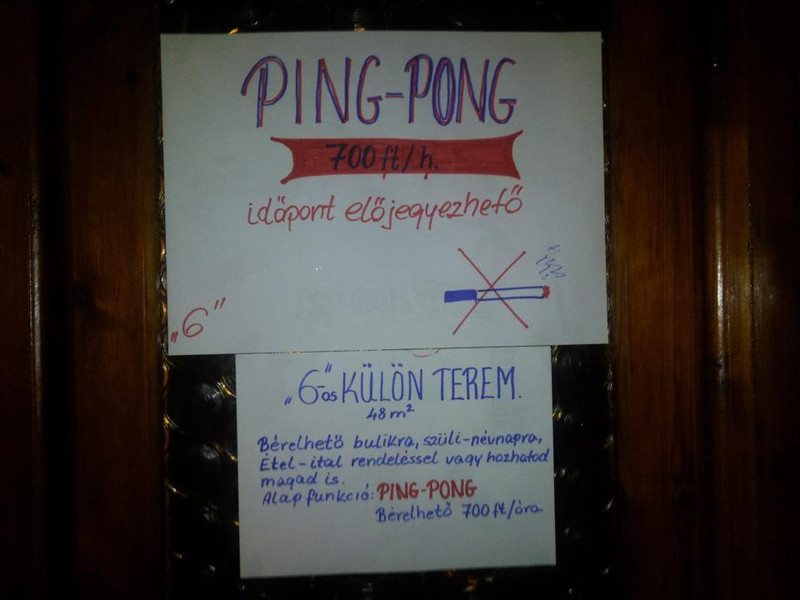 PING-PONG
700 ft/h.
időpont előjegyezhető
„6”
„6”-os KÜLÖN TEREM.
48 m²
Bérelhető bulikra, szüli-névnapra,
Étel-ital rendeléssel vagy hozhatod
magad is.
Alap funkció: PING-PONG
Bérelhető 700 ft/óra